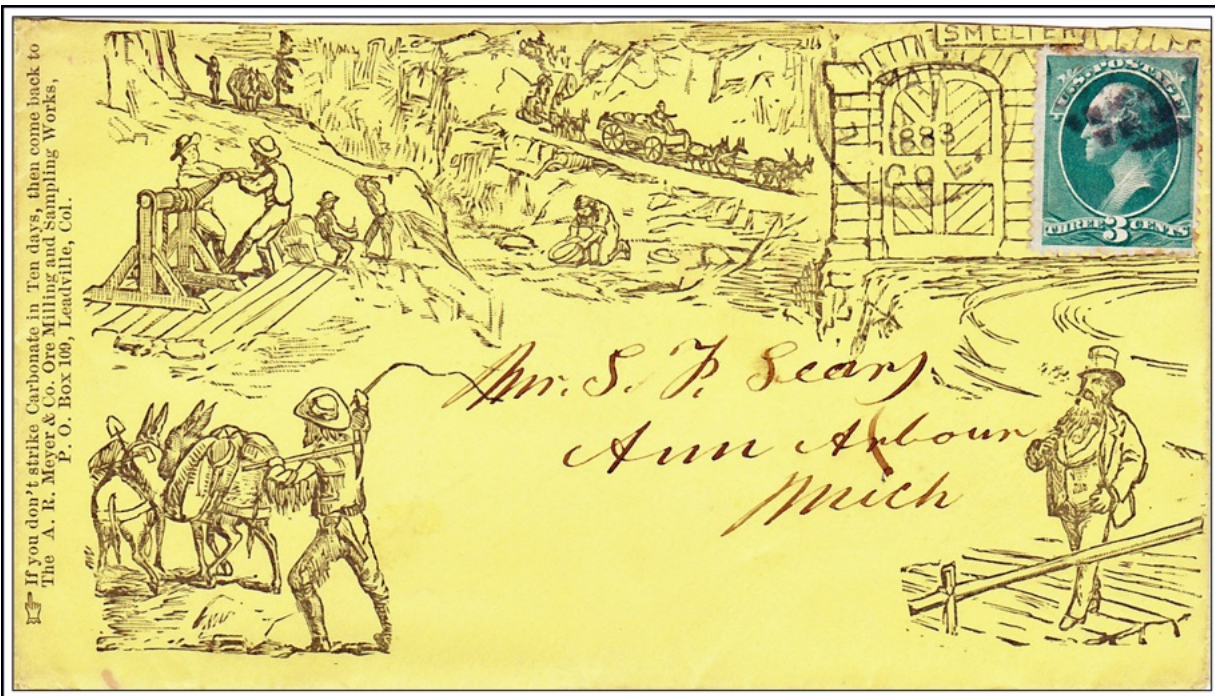 ☞ If you don't strike Carbonate in Ten days, then come back to
The A. R. Meyer & Co. Ore Milling and Sampling Works,
P. O. Box 109, Leadville, Col.
SMELTER
MAR
1883
COL.
U.S. POSTAGE
THREE 3 CENTS
Mr. S. F. Sears
Ann Arbour
Mich